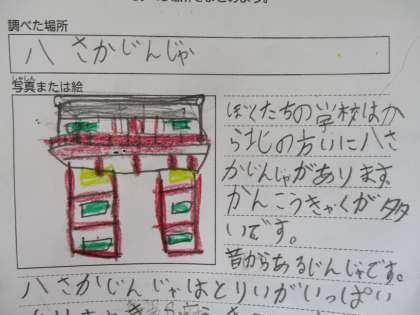 調べた場所
八さかじんじゃ
写真または絵
しゃしん
ぼくたちの学校はか
ら北の方いに八さ
かじんじゃがあります
かんこうきゃくが多
いです。
昔からあるじんじゃです。
八さかじんじゃはとりいがいっぱい